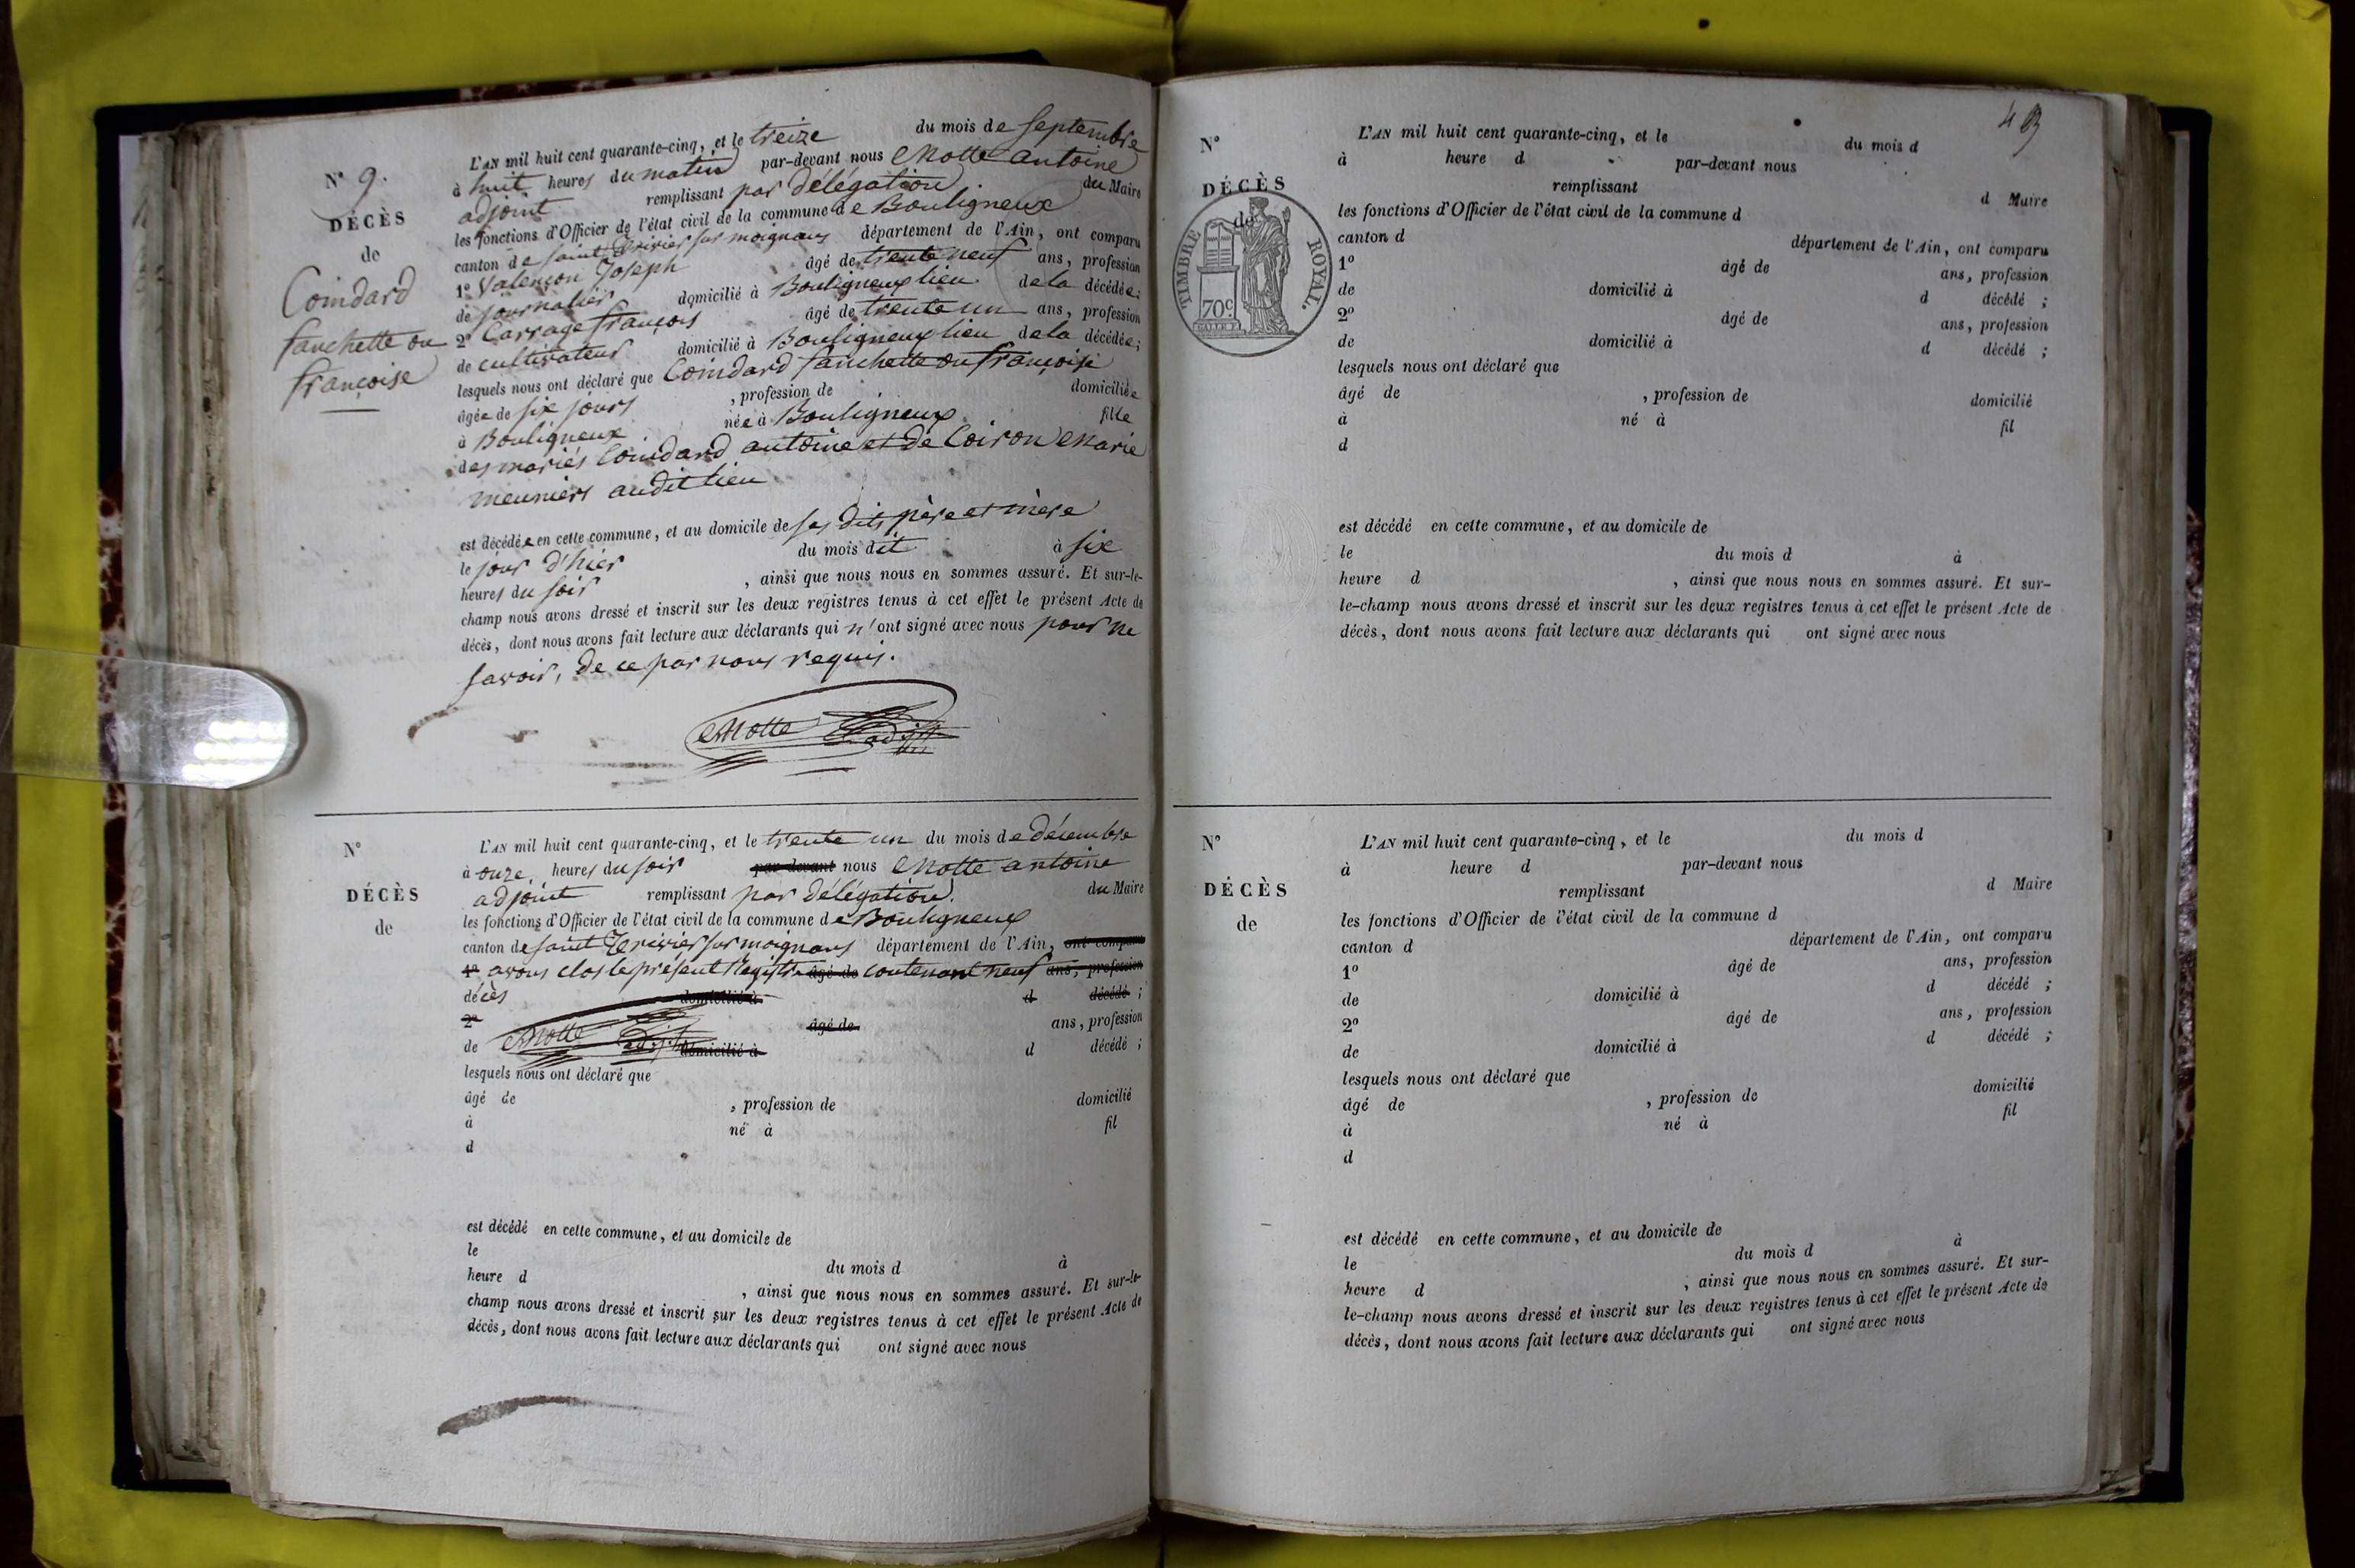 N° 9.
DÉCÈS
de
Coindard
fanchette ou
françoise
L'AN mil huit cent quarante-cinq, et le treize du mois de septembre
à huit heures du matin par-devant nous Motte antoine
adjoint remplissant par délégation du Maire
les fonctions d'Officier de l'état civil de la commune de Bouligneux
canton de saint Trivier sur moignans département de l'Ain, ont comparu
1° Valençon Joseph âgé de trente neuf ans, profession
de journalier domicilié à Bouligneux lieu de la décédée;
2° Carrage françois âgé de trente un ans, profession
de cultivateur domicilié à Bouligneux lieu de la décédée;
lesquels nous ont déclaré que Coindard fanchette ou françoise
âgée de six jours , profession de domiciliée
à Bouligneux née à Bouligneux fille
des mariés Coindard antoine et de Coiron Marie
meuniers audit lieu
est décédée en cette commune, et au domicile de ses dits père et mère
le jour d'hier du mois dit à six
heures du soir , ainsi que nous nous en sommes assuré. Et sur-le-
champ nous avons dressé et inscrit sur les deux registres tenus à cet effet le présent Acte de
décès, dont nous avons fait lecture aux déclarants qui n'ont signé avec nous pour ne
savoir, de ce par nous requis.
Motte adjt
N°
DÉCÈS
de
L'AN mil huit cent quarante-cinq, et le trente un du mois de décembre
à onze heures du soir par-devant nous Motte antoine
adjoint remplissant par délégation. du Maire
les fonctions d'Officier de l'état civil de la commune de Bouligneux
canton de saint Trivier sur moignans département de l'Ain, ont comparu
1° avons clos le présent Registre âgé de contenant neuf ans, profession
décès domicilié à d décédé ;
2° âgé de ans, profession
de Motte adjt domicilié à d décédé ;
lesquels nous ont déclaré que
âgé de , profession de domicilié
à né à fil
d
est décédé en cette commune, et au domicile de
le du mois d à
heure d , ainsi que nous nous en sommes assuré. Et sur-le-
champ nous avons dressé et inscrit sur les deux registres tenus à cet effet le présent Acte de
décès, dont nous avons fait lecture aux déclarants qui ont signé avec nous
N°
DÉCÈS
de
TIMBRE ROYAL.
70c
L'AN mil huit cent quarante-cinq, et le du mois d
à heure d par-devant nous
remplissant d Maire
les fonctions d'Officier de l'état civil de la commune d
canton d département de l'Ain, ont comparu
1° âgé de ans, profession
de domicilié à d décédé ;
2° âgé de ans, profession
de domicilié à d décédé ;
lesquels nous ont déclaré que
âgé de , profession de domicilié
à né à fil
d
est décédé en cette commune, et au domicile de
le du mois d à
heure d , ainsi que nous nous en sommes assuré. Et sur-
le-champ nous avons dressé et inscrit sur les deux registres tenus à cet effet le présent Acte de
décès, dont nous avons fait lecture aux déclarants qui ont signé avec nous
N°
DÉCÈS
de
L'AN mil huit cent quarante-cinq, et le du mois d
à heure d par-devant nous
remplissant d Maire
les fonctions d'Officier de l'état civil de la commune d
canton d département de l'Ain, ont comparu
1° âgé de ans, profession
de domicilié à d décédé ;
2° âgé de ans, profession
de domicilié à d décédé ;
lesquels nous ont déclaré que
âgé de , profession de domicilié
à né à fil
d
est décédé en cette commune, et au domicile de
le du mois d à
heure d , ainsi que nous nous en sommes assuré. Et sur-
le-champ nous avons dressé et inscrit sur les deux registres tenus à cet effet le présent Acte de
décès, dont nous avons fait lecture aux déclarants qui ont signé avec nous